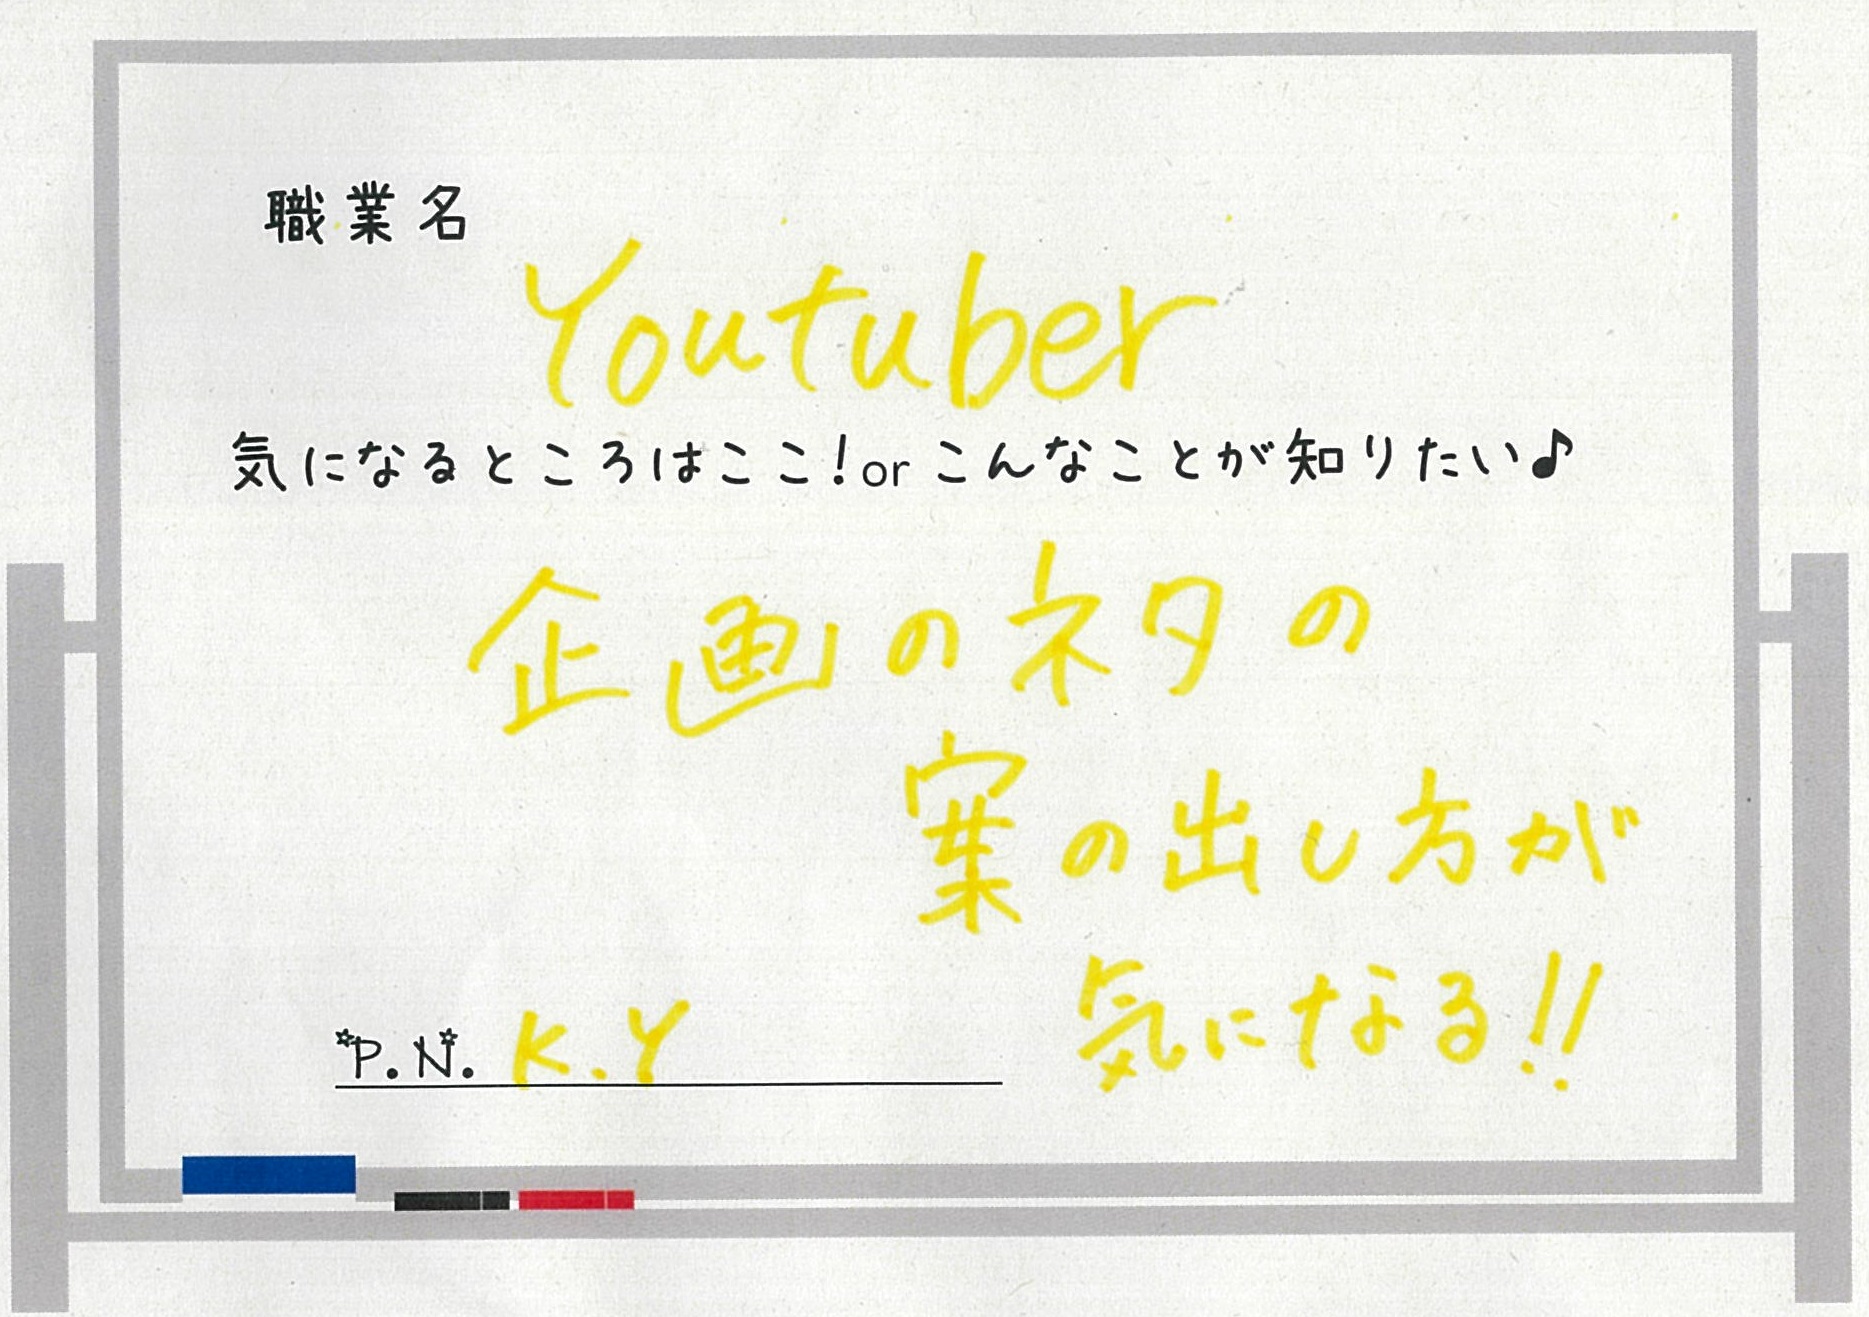 職業名
Youtuber
気になるところはここ!or こんなことが知りたい♪
企画のネタの
案の出し方が
気になる!!
P.N. K.Y